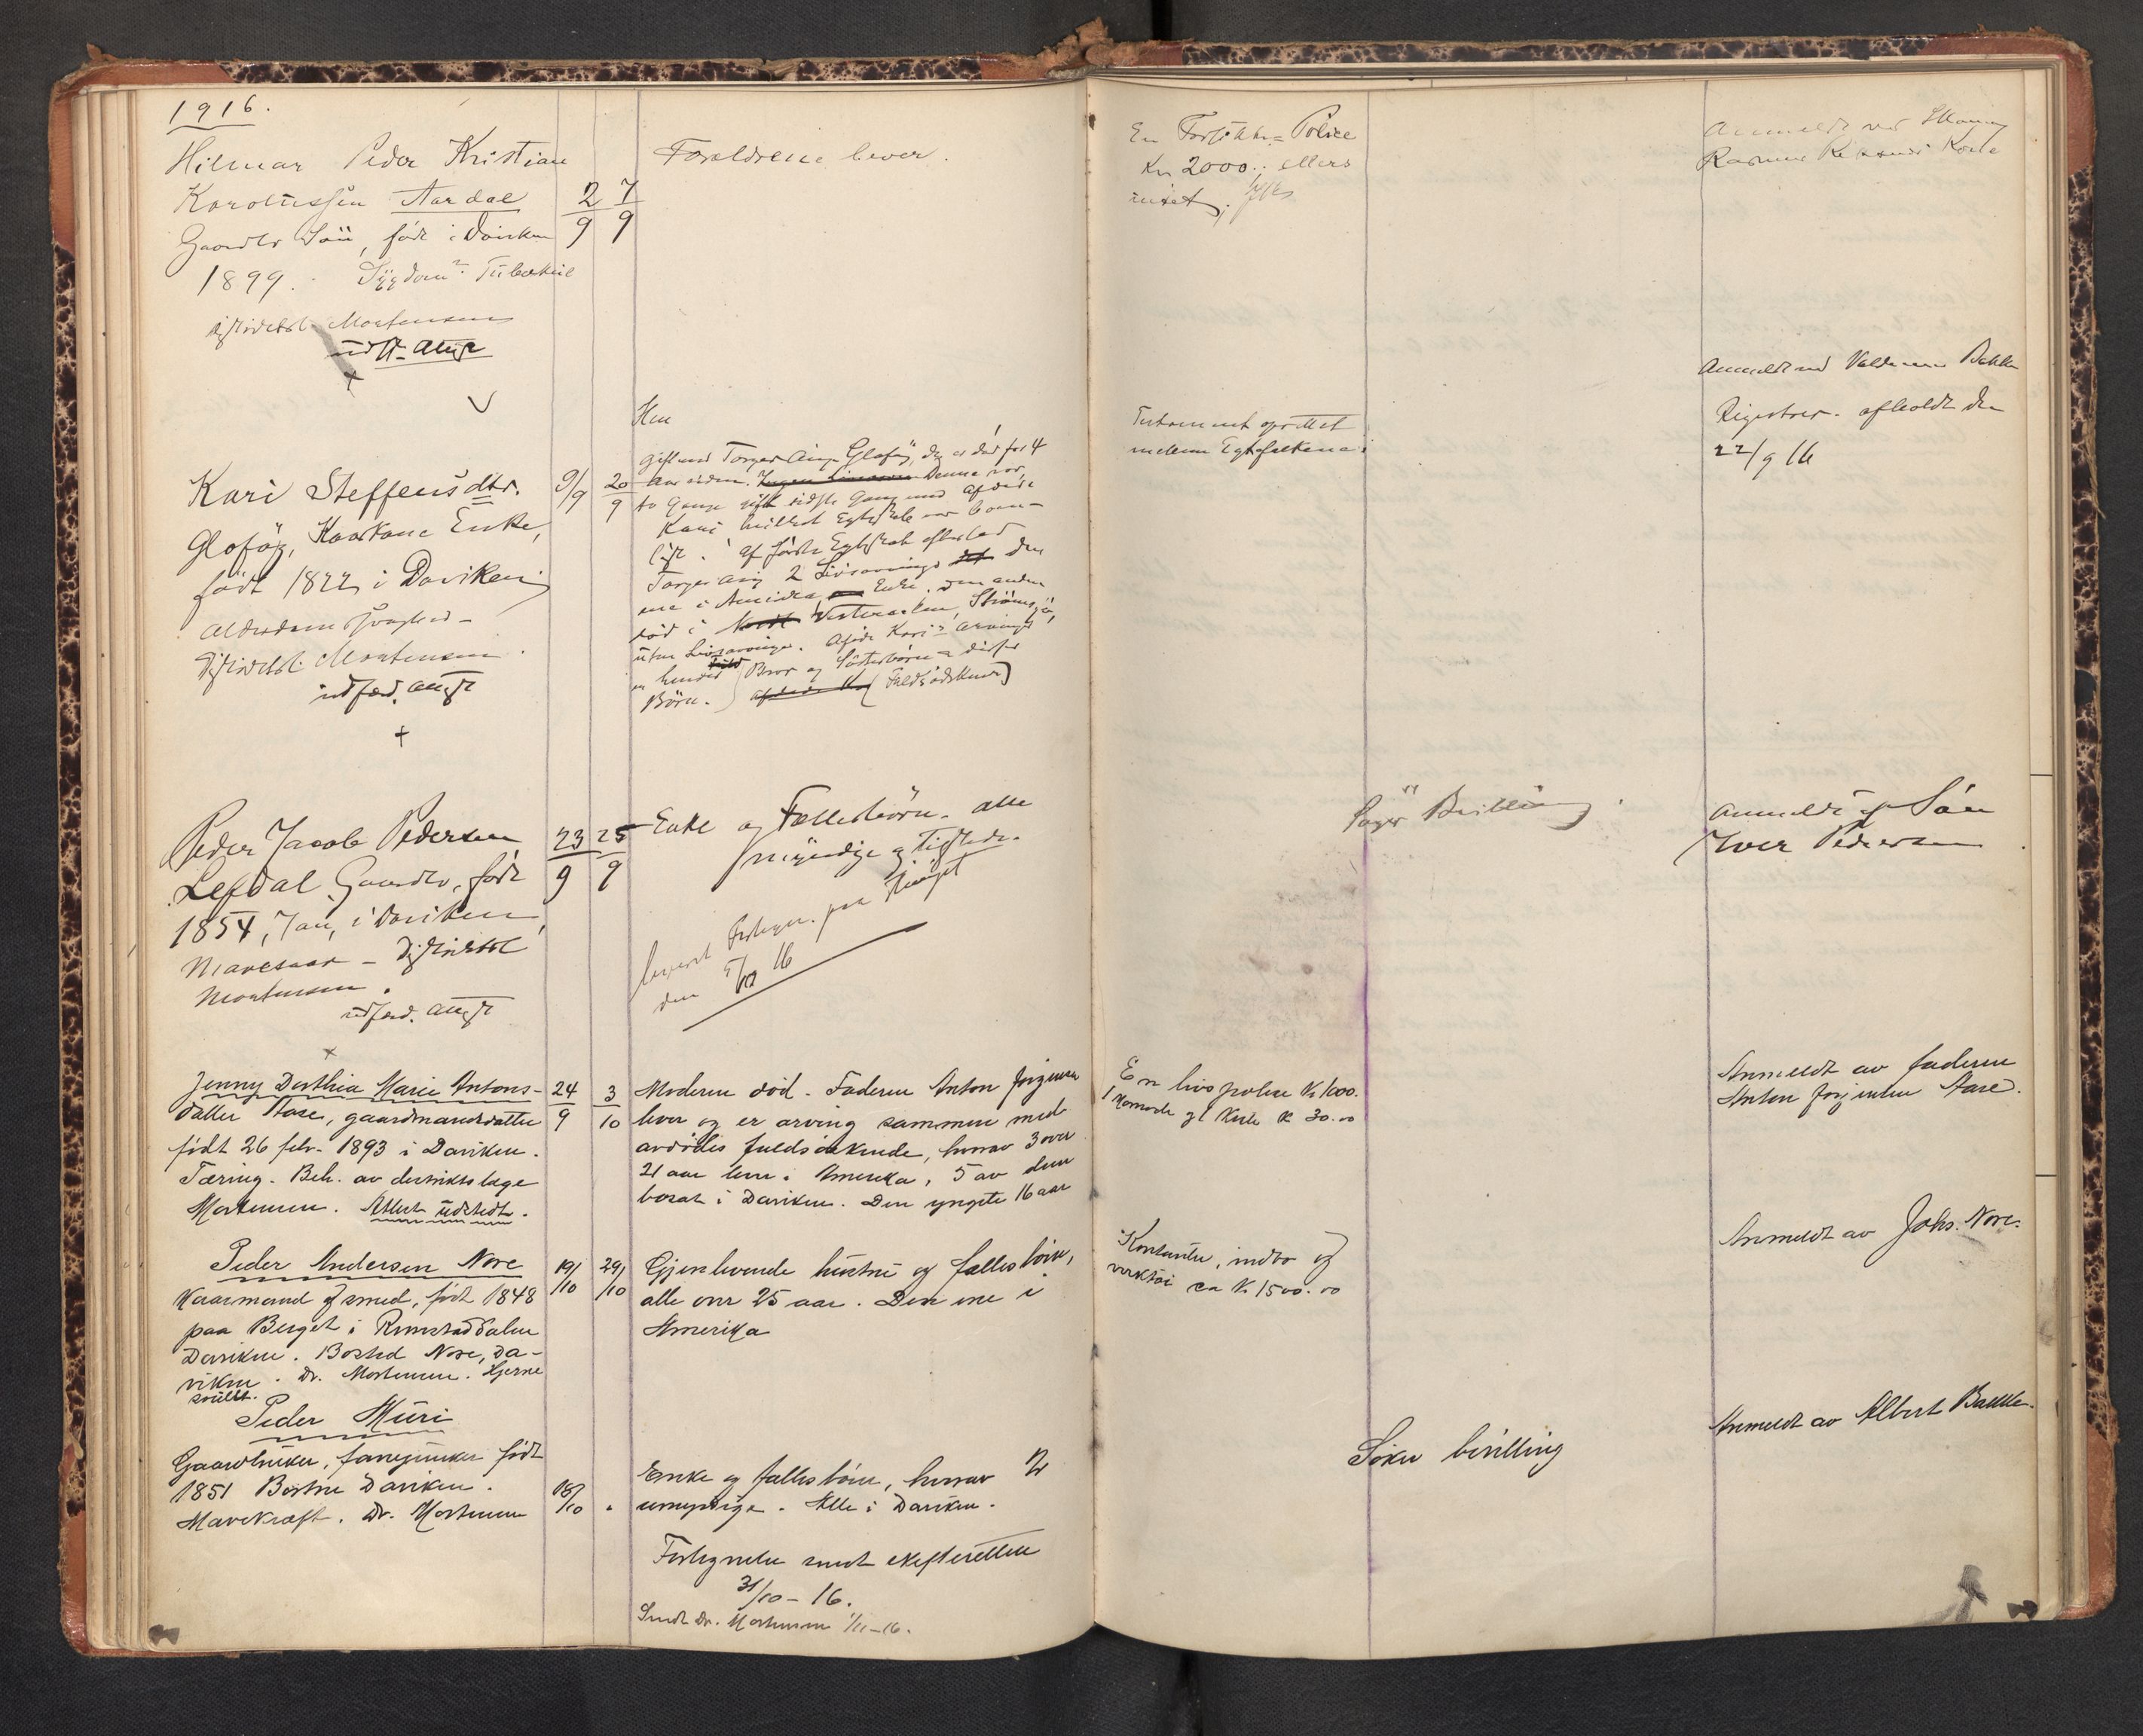 1916.
Hilmar Peder Kristian
Karolussen Aardal
Gaardbr Sön, födt i Daviken
1899. Sygdom: Tuberkul
distriktsl. Mortensen
udst. attest
2/9 7/9
Forældrene lever.
En Forsikr.= Police
Kr 2000.; ellers
intet.
Anmeldt ved
Rasmus
Kari Steffensdtr.
Gloføy, Kaarkone Enke,
födt 1822 i Daviken
Alderdomssvaghed -
Distriktsl. Mortensen.
udfærd. attest
+
9/9 20/9
Hun
gift med Torger Gloföy, der er död for 4
Aar siden. Ingen Livsarvinger Denne var
to Gange gift sidste Gang med afdøde
Kari hvilket Egteskab var barn-
löst. Af förste Egteskab efterlod
Torger 2 Livsarvinger det den
ene i Amerika Enke, den anden
död i Vesteraalen,
uten Livsarvinger. Afdöde Kari's Arvinger
er hendes Bror og Sösterbörn
Börn. afdöde K (Fuldsödskner)
Testament oprettet
mellem Egtefolkene
Anmeldt ved Valdemar Bakke
Registrer. afholdt den
22/9 16
Peder Jacob Pedersen
Lefdal, Gaardbr, födt
1854, Jan, i Daviken,
Mavesaar - Distriktsl
Mortensen.
udfærd. attest
23/9 25/9
Enke og Fællesbörn. alle
myndige og tilstede.
leveret Fortegn. paa Thinget
den 5/10 16
Söger Bevilling.
Anmeldt af Sön
Iver Pedersen
Jenny Dorthia Marie Antons-
datter Aase, gaardmandsdatter
født 26 febr. 1893 i Daviken.
Tæring. Beh. av distriktslæge
Mortensen. Attest udstedt.
24/9 3/10
Moderen død. Faderen Anton Jørgensen
lever og er arving sammen med
avdødes fuldsøskende, hvorav 3 over
21 aar lever i Amerika, 5 av dem
bosat i Daviken. Den yngste 16 aar
En livspolise Kr 1000.
1 Komode og 1 Kiste Kr 30.00
Anmeldt av faderen
Anton Jørgensen Aase.
Peder Andersen Nore
Kaarmand og smed, født 1848
paa Berget i Rimstaddalen
Daviken. Bosted Nore, Da-
viken. Dr. Mortensen. Hjerne
svulst.
19/10 29/10
Gjenlevende hustru og fælles børn,
alle over 25 aar. Den ene i
Amerika
Kontanter, indbo og
verktøi ca Kr 1500.00
Anmeldt av Johs. Nore.
Peder Muri
Gaardbruker, fanejunker født
1851 Bosted Daviken.
Mavekræft. Dr. Mortensen
18/10
Enke og fælles børn, hvorav 2
umyndige. Alle i Daviken.
Fortegnelse sendt skifteretten
31/10 - 16.
Sendt Dr. Mortensen 1/11 - 16.
Søker bevilling
Anmeldt av Albert Bakke.